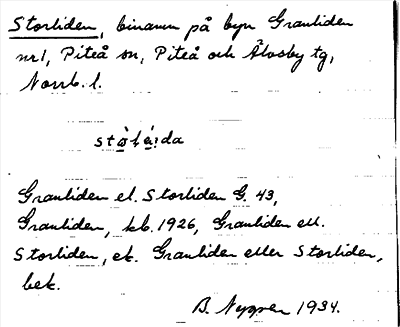 Storliden, binamn på byn Granliden
nr 1, Piteå sn, Piteå och Älvsby tg,
Norrb. l.
Granliden el. Storliden G. 43,
Granliden, kb. 1926, Granliden ell.
Storliden, ek. Granliden eller Storliden,
bek.
B. 1934.